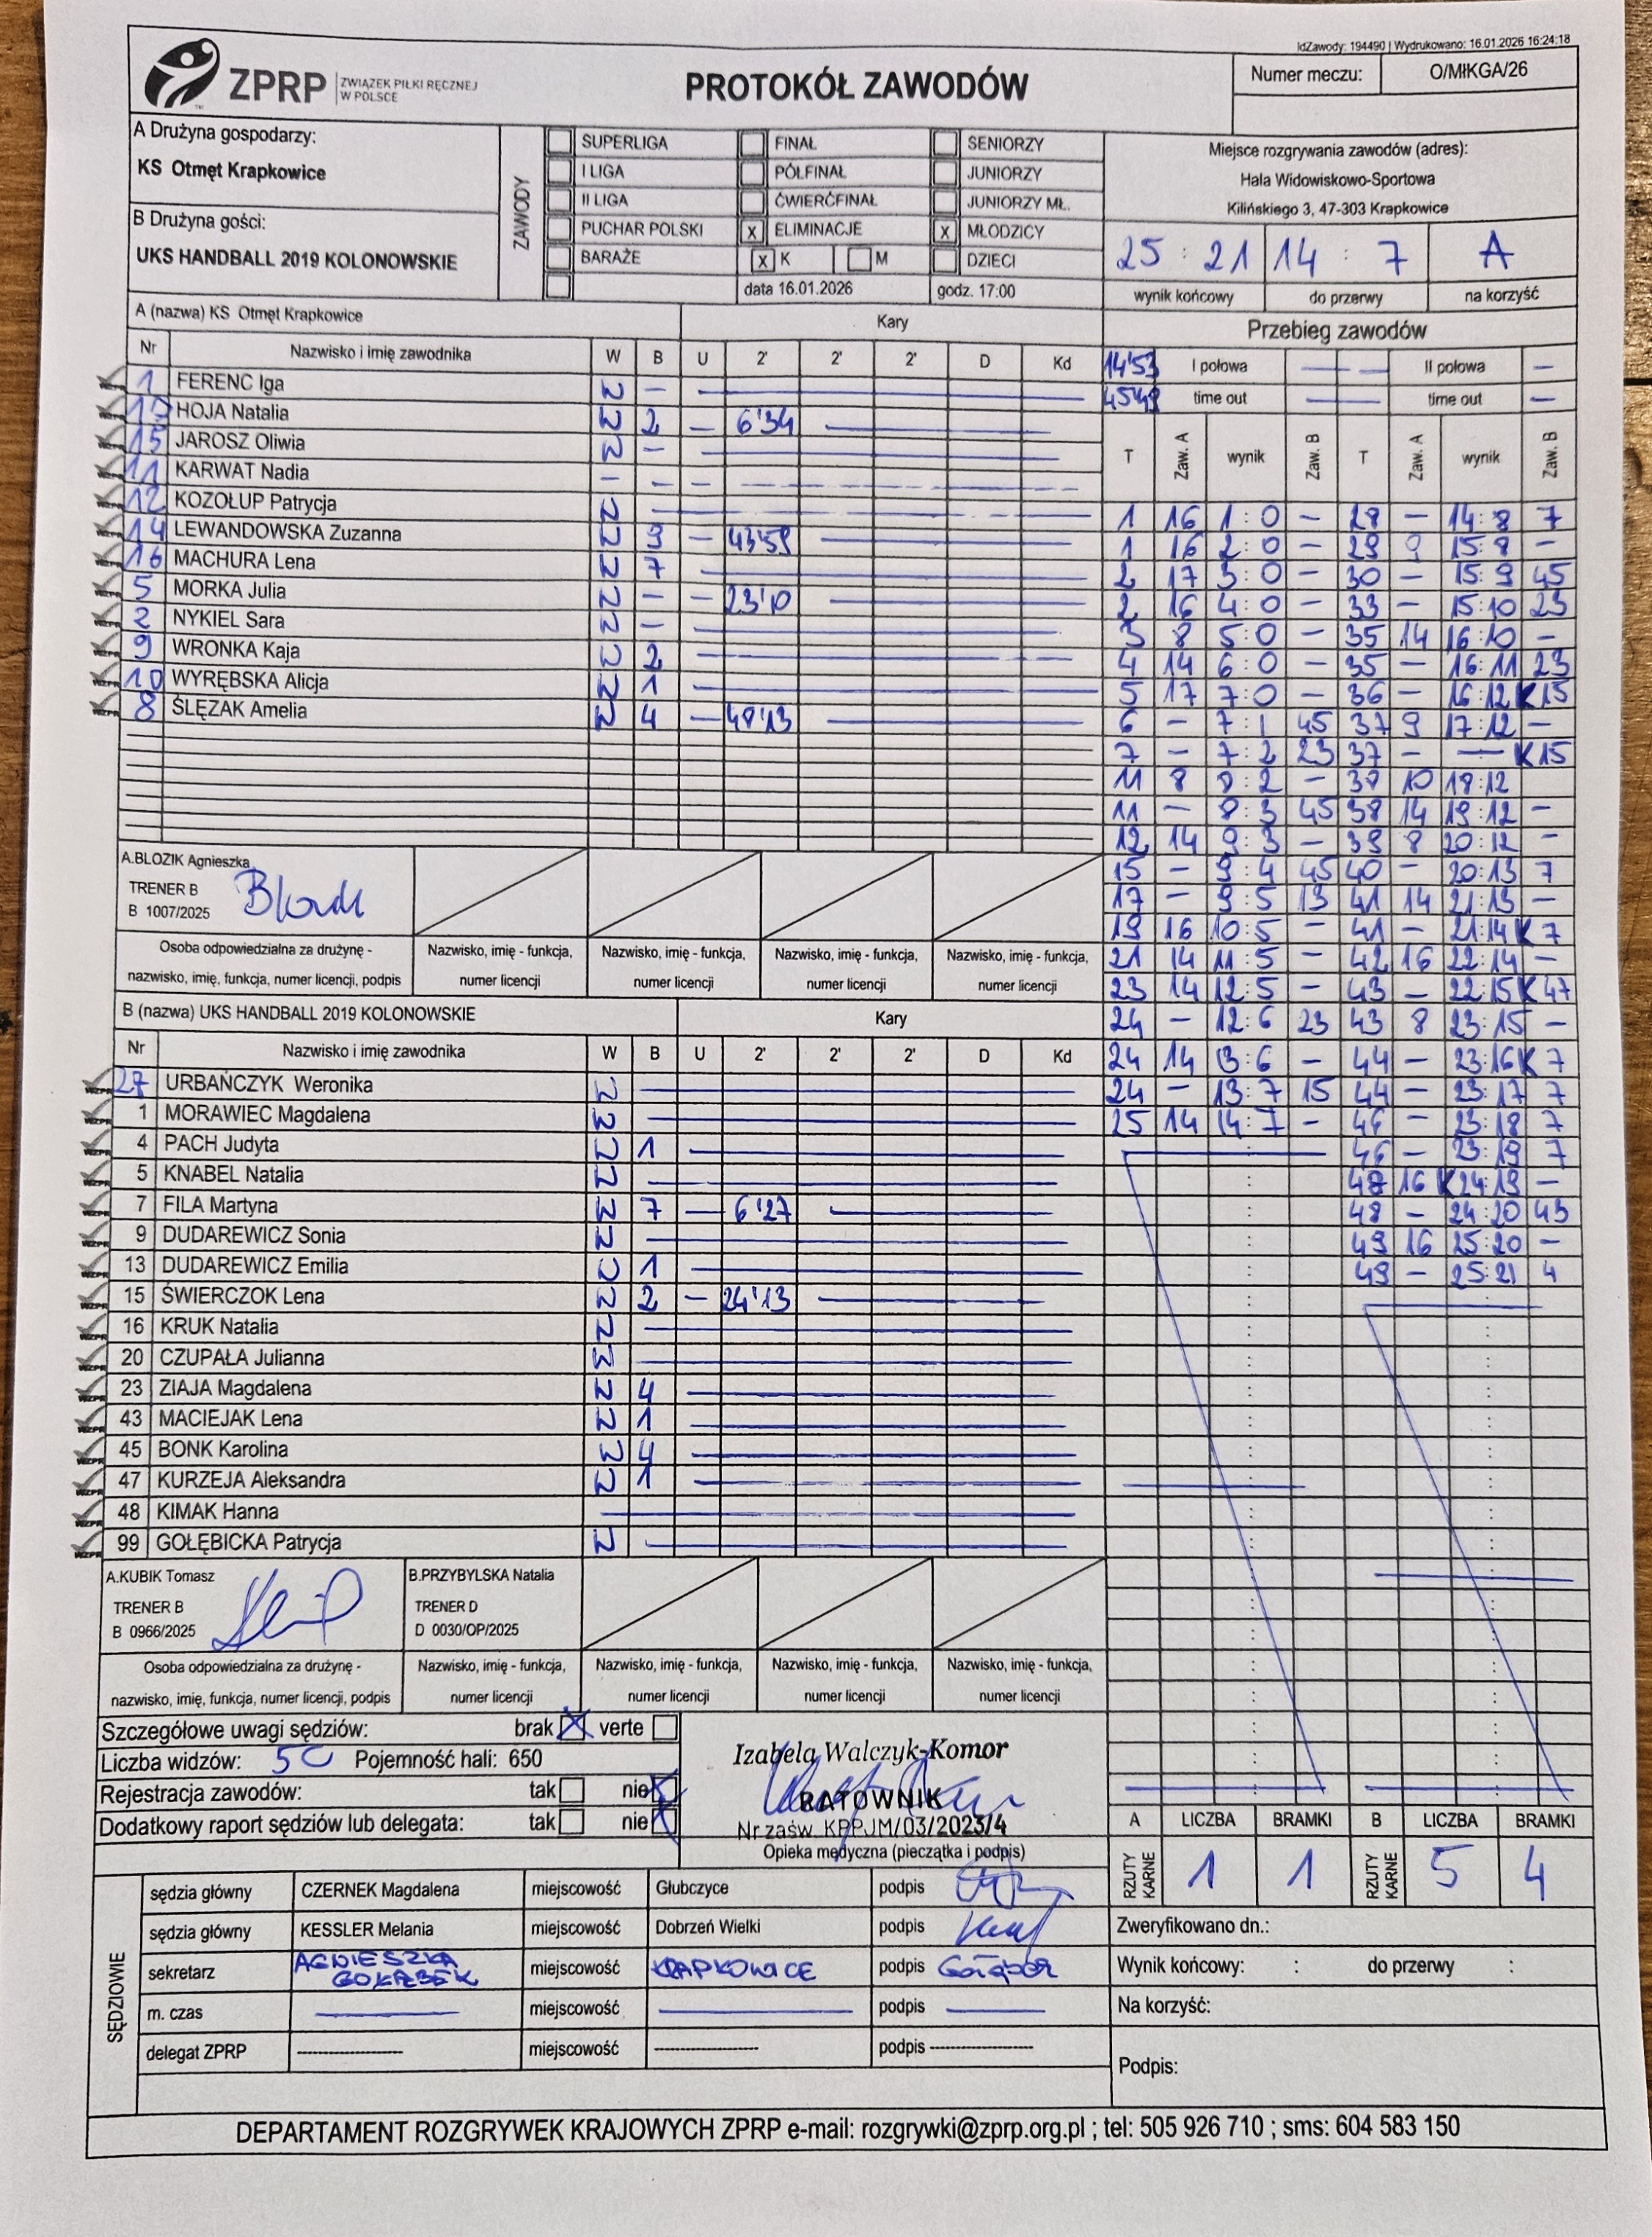 IdZawody: 194490 | Wydrukowano: 16.01.2026 16:24:18
ZPRP ZWIĄZEK PIŁKI RĘCZNEJ W POLSCE
PROTOKÓŁ ZAWODÓW
Numer meczu: O/MłKGA/26
A Drużyna gospodarzy:
KS Otmęt Krapkowice
B Drużyna gości:
UKS HANDBALL 2019 KOLONOWSKIE
ZAWODY
SUPERLIGA FINAŁ SENIORZY
I LIGA PÓŁFINAŁ JUNIORZY
II LIGA ĆWIERĆFINAŁ JUNIORZY MŁ.
PUCHAR POLSKI x ELIMINACJE x MŁODZICY
BARAŻE x K M DZIECI
data 16.01.2026 godz. 17:00
Miejsce rozgrywania zawodów (adres):
Hala Widowiskowo-Sportowa
Kilińskiego 3, 47-303 Krapkowice
25 : 21 14 : 7 A
wynik końcowy do przerwy na korzyść
A (nazwa) KS Otmęt Krapkowice Kary
Nr Nazwisko i imię zawodnika W B U 2' 2' 2' D Kd
1 FERENC Iga W —
17 HOJA Natalia W 2 — 6'34
15 JAROSZ Oliwia W —
11 KARWAT Nadia — —
12 KOZOŁUP Patrycja W
14 LEWANDOWSKA Zuzanna W 9 — 43'59
16 MACHURA Lena W 7
5 MORKA Julia W — — 23'10
2 NYKIEL Sara W —
9 WRONKA Kaja W 2
10 WYRĘBSKA Alicja W 1
8 ŚLĘZAK Amelia W 4 — 48'13
A.BLOZIK Agnieszka
TRENER B
B 1007/2025
Osoba odpowiedzialna za drużynę -
nazwisko, imię, funkcja, numer licencji, podpis
Nazwisko, imię - funkcja, numer licencji
Nazwisko, imię - funkcja, numer licencji
Nazwisko, imię - funkcja, numer licencji
Nazwisko, imię - funkcja, numer licencji
B (nazwa) UKS HANDBALL 2019 KOLONOWSKIE Kary
Nr Nazwisko i imię zawodnika W B U 2' 2' 2' D Kd
27 URBAŃCZYK Weronika W
1 MORAWIEC Magdalena W
4 PACH Judyta W 1
5 KNABEL Natalia W
7 FILA Martyna W 7 — 6'27
9 DUDAREWICZ Sonia W
13 DUDAREWICZ Emilia W 1
15 ŚWIERCZOK Lena W 2 — 24'13
16 KRUK Natalia W
20 CZUPAŁA Julianna W
23 ZIAJA Magdalena W 4
43 MACIEJAK Lena W 1
45 BONK Karolina W 4
47 KURZEJA Aleksandra W 1
48 KIMAK Hanna
99 GOŁĘBICKA Patrycja W
A.KUBIK Tomasz
TRENER B
B 0966/2025
B.PRZYBYLSKA Natalia
TRENER D
D 0030/OP/2025
Osoba odpowiedzialna za drużynę -
nazwisko, imię, funkcja, numer licencji, podpis
Nazwisko, imię - funkcja, numer licencji
Nazwisko, imię - funkcja, numer licencji
Nazwisko, imię - funkcja, numer licencji
Nazwisko, imię - funkcja, numer licencji
Przebieg zawodów
14'53 I połowa — — II połowa —
45'49 time out — time out —
T Zaw. A wynik Zaw. B T Zaw. A wynik Zaw. B
1 16 1:0 — 28 — 14:8 7
1 16 2:0 — 29 9 15:8 —
2 17 3:0 — 30 — 15:9 45
2 16 4:0 — 33 — 15:10 23
3 8 5:0 — 35 14 16:10 —
4 14 6:0 — 35 — 16:11 23
5 17 7:0 — 36 — 16:12 K15
6 — 7:1 45 37 9 17:12 —
7 — 7:2 23 37 — — K15
11 8 8:2 — 38 10 18:12
11 — 8:3 45 38 14 19:12 —
12 14 9:3 — 39 8 20:12 —
15 — 9:4 45 40 — 20:13 7
17 — 9:5 13 41 14 21:13 —
19 16 10:5 — 41 — 21:14 K7
21 14 11:5 — 42 16 22:14 —
23 14 12:5 — 43 — 22:15 K47
24 — 12:6 23 43 8 23:15 —
24 14 13:6 — 44 — 23:16 K7
24 — 13:7 15 44 — 23:17 7
25 14 14:7 — 46 — 23:18 7
46 — 23:19 7
48 16 K24:19 —
48 — 24:20 43
49 16 25:20 —
49 — 25:21 4
Szczegółowe uwagi sędziów: brak X verte
Liczba widzów: 50 Pojemność hali: 650
Rejestracja zawodów: tak nie X
Dodatkowy raport sędziów lub delegata: tak nie X
Izabela Walczyk-Komor
RATOWNIK
Nr zaśw. KPPJM/03/2023/4
Opieka medyczna (pieczątka i podpis)
A LICZBA BRAMKI B LICZBA BRAMKI
RZUTY KARNE 1 1 RZUTY KARNE 5 4
SĘDZIOWIE
sędzia główny CZERNEK Magdalena miejscowość Głubczyce podpis
sędzia główny KESSLER Melania miejscowość Dobrzeń Wielki podpis
sekretarz AGNIESZKA GOŁĄBEK miejscowość KRAPKOWICE podpis Gołąbek
m. czas miejscowość podpis
delegat ZPRP ---------- miejscowość ---------- podpis ----------
Zweryfikowano dn.:
Wynik końcowy: : do przerwy :
Na korzyść:
Podpis:
DEPARTAMENT ROZGRYWEK KRAJOWYCH ZPRP e-mail: rozgrywki@zprp.org.pl ; tel: 505 926 710 ; sms: 604 583 150